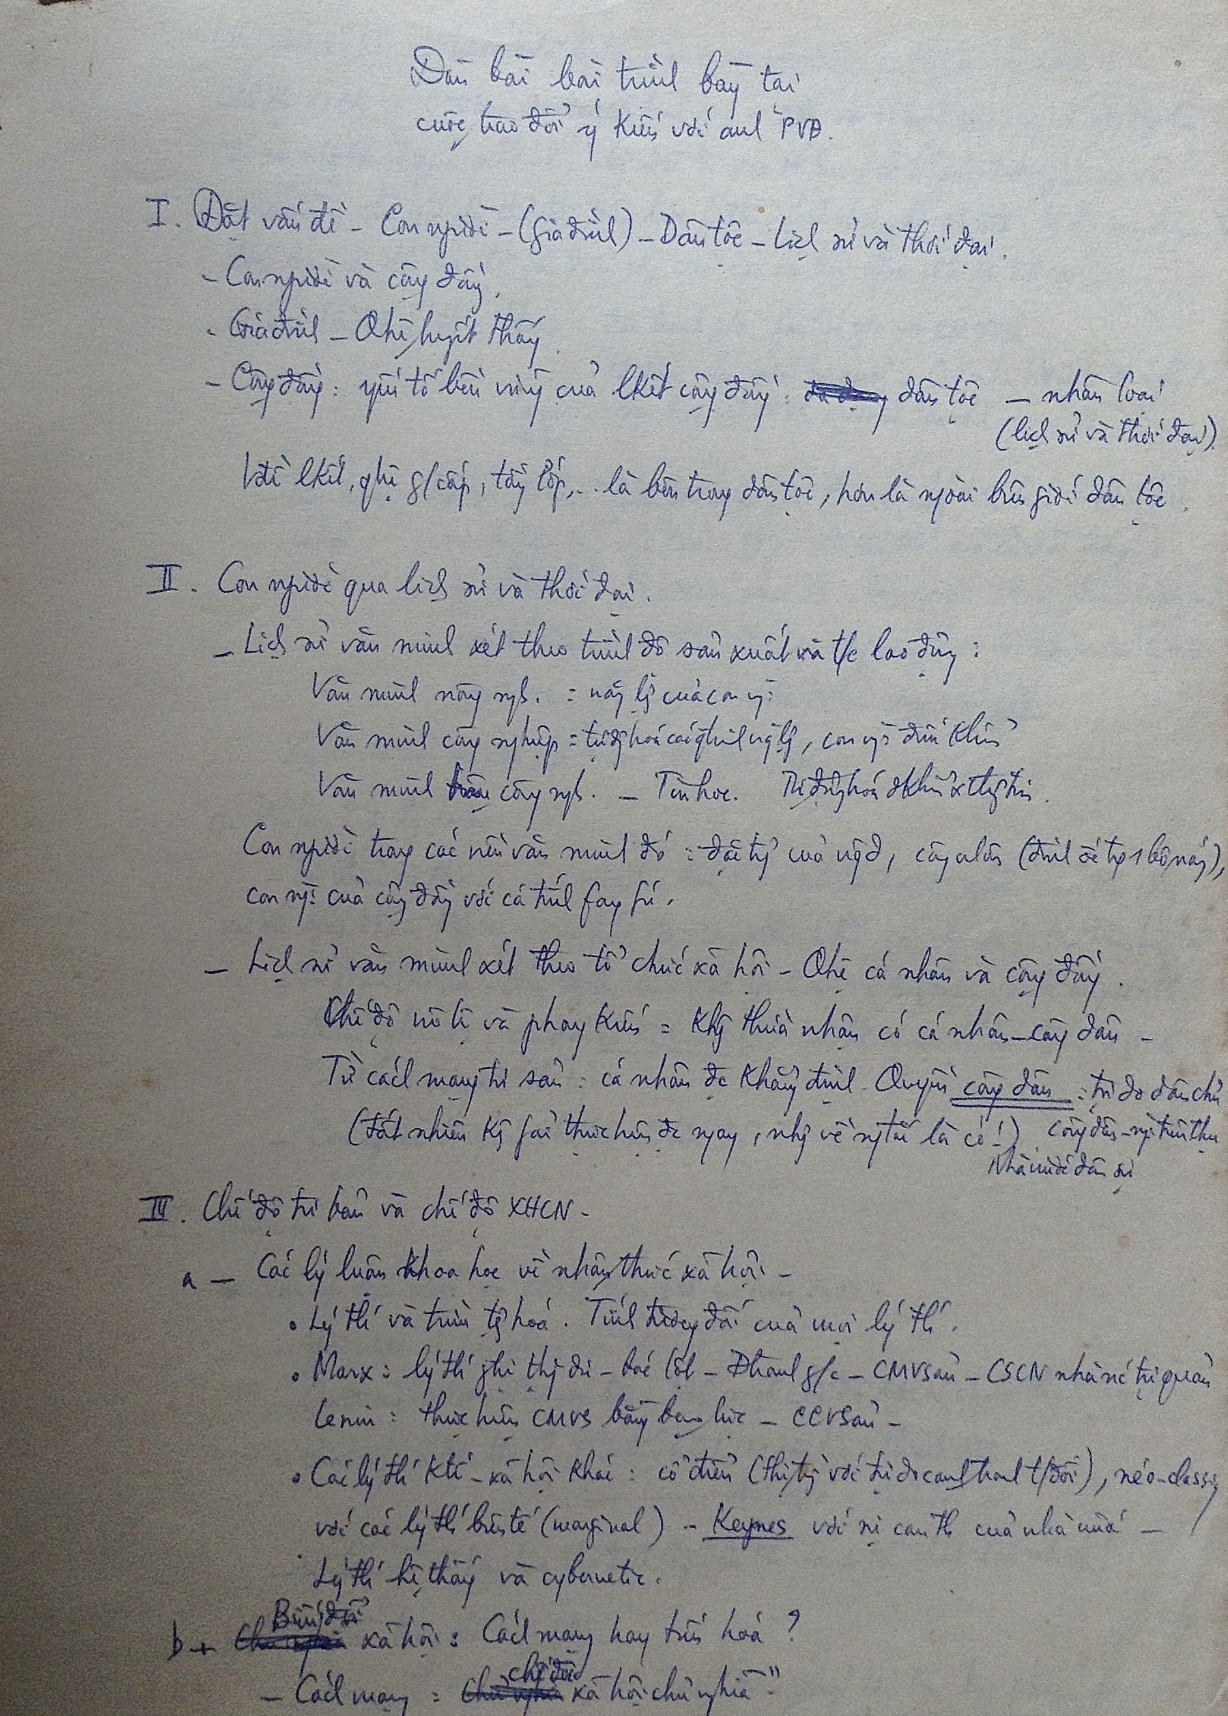 Dàn bài bài trình bày tại
cuộc trao đổi ý kiến với anh PVĐ.
I. Đặt vấn đề - Con người - (Gia đình) - Dân tộc - Lịch sử và thời đại.
- Con người và cộng đồng.
- Gia đình - Qhệ huyết thống
- Cộng đồng: yếu tố bền vững của lkết cộng đồng: dân tộc - nhân loại
(lịch sử và thời đại).
Vđề lkết, qhệ g/cấp, tầng lớp,... là bên trong dân tộc, hơn là ngoài biên giới dân tộc.
II. Con người qua lịch sử và thời đại.
- Lịch sử văn minh xét theo trình độ sản xuất và t/c lao động:
Văn minh nông ngh. = năng lg của con ng:
Văn minh công nghiệp = tự độg hoá các qtrình vật lý, con ng: điều khiển
Văn minh công ngh. - Tin học. Tự động hoá đkhiển thg tin.
Con người trong các nền văn minh đó: của, công nhân (đinh ốc tg 1 bộ máy),
con ng: của cộng đồng với cá tính fong fú.
- Lịch sử văn minh xét theo tổ chức xã hội - Qhệ cá nhân và cộng đồng.
Chế độ nô lệ và phong kiến = Khg thừa nhận có cá nhân - công dân -
Từ cách mạng tư sản: cá nhân đc khẳng định. Quyền công dân: tự do dân chủ
(tất nhiên kg fải thực hiện đc ngay, nhg về ngtắc là có!) công dân - ng: tiêu thụ
Nhà nước dân sự
III. Chế độ tư bản và chế độ XHCN -
a - Các lý luận khoa học về nhận thức xã hội -
• Lý th' và trừu tượng hoá. Tính tương đối của mọi lý th'.
• Marx: lý th' ghi thg dư - bóc lột - Đtranh g/c - CMVSản - CSCN nhà nc tự quản
Lenin: thực hiện CMVS bằng bạo lực - CCVSản -
• Các lý th' Ktế - xã hội khác: cổ điển (thị tg với tự do cạnh tranh t/đối), néo-classi,
với các lý th' biên tế (marginal) - Keynes với sự can th của nhà nước -
Lý th' hệ thống và cybernetic.
Biến đổi
b + xã hội: Cách mạng hay tiến hoá?
chế độ
- Cách mạng = xã hội chủ nghĩa"